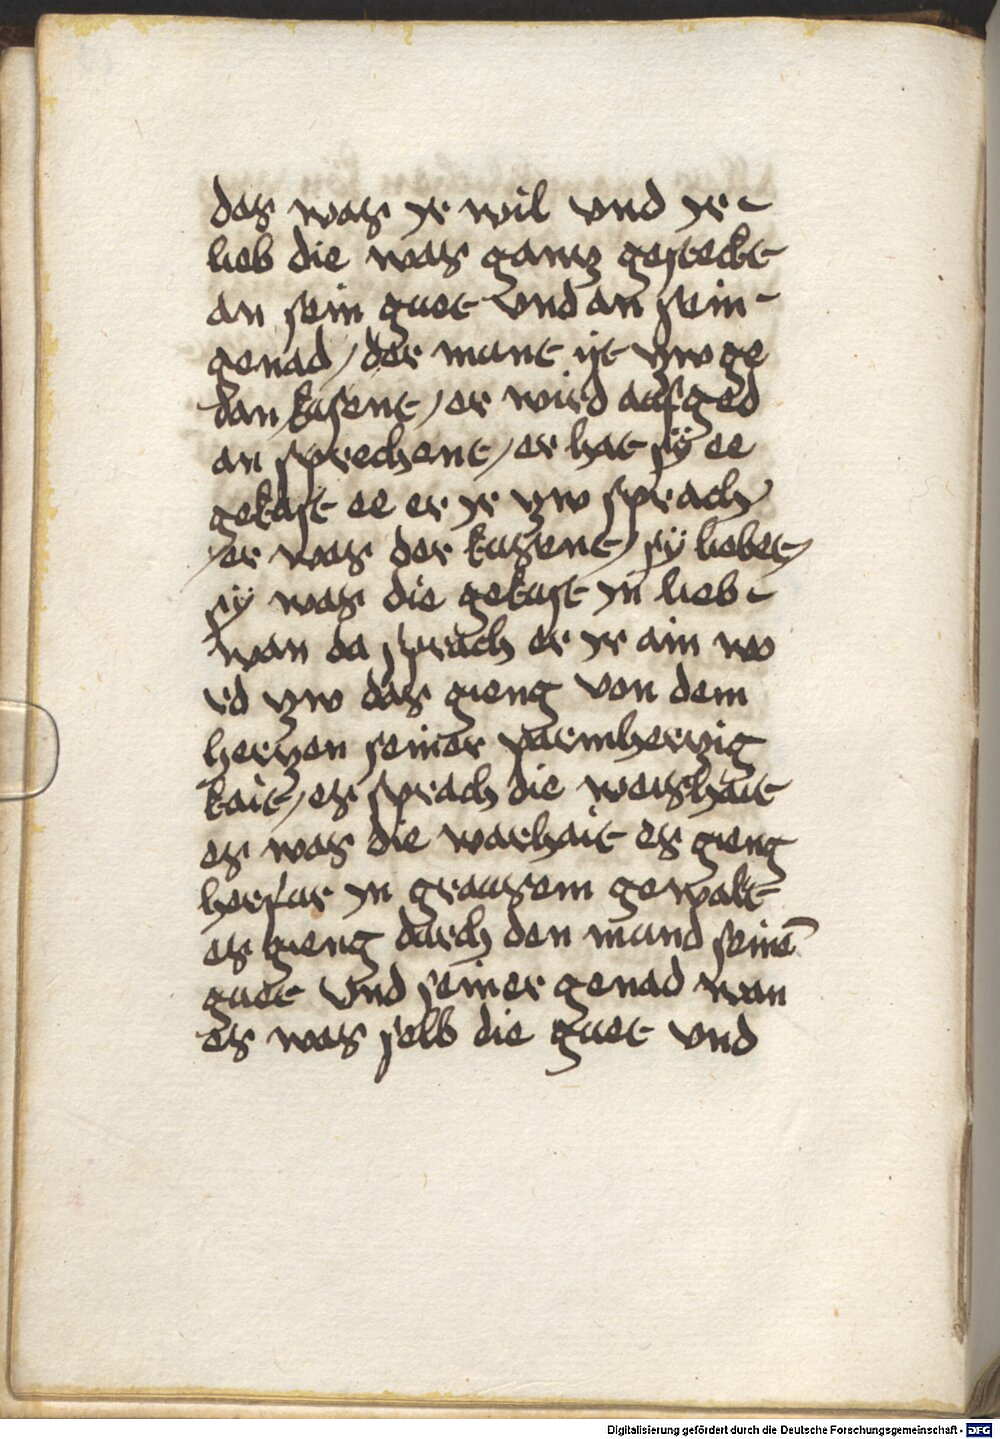 das was yr wil vnd yr -
lieb die was gantz gesteckt
an sein guet vnd an sein -
genad / der munt ist zw ge
dan kusent / er wird aufged
an sprechent / er hat sÿ ee
gekust ee er yr zw sprach
/ er was der kusent / sÿ liebet /
sÿ was die gekust yn lieb -
wan da sprach er yr ain wo
rd zw das gieng von dem
hertzen seiner parmhertzig
kait / es sprach die weishait
es was die warhait es gieng
herfur yn grausem gewalt
es gieng durch den mund seinē
guet vnd seiner genad wan
es was selb die guet vnd
Digitalisierung gefördert durch die Deutsche Forschungsgemeinschaft - DFG